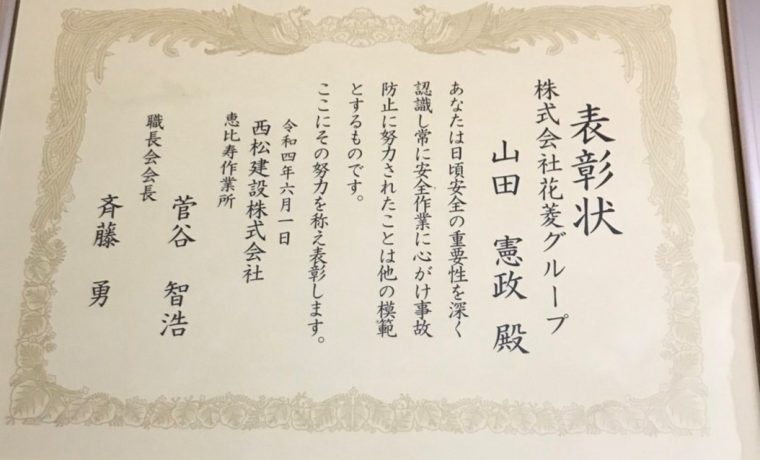 表彰状
株式会社花菱グループ
山田 憲政 殿
あなたは日頃安全の重要性を深く
認識し常に安全作業に心がけ事故
防止に努力されたことは他の模範
とするものです。
ここにその努力を称え表彰します。
令和四年六月一日
西松建設株式会社
恵比寿作業所
菅谷 智浩
職長会会長
斉藤 勇